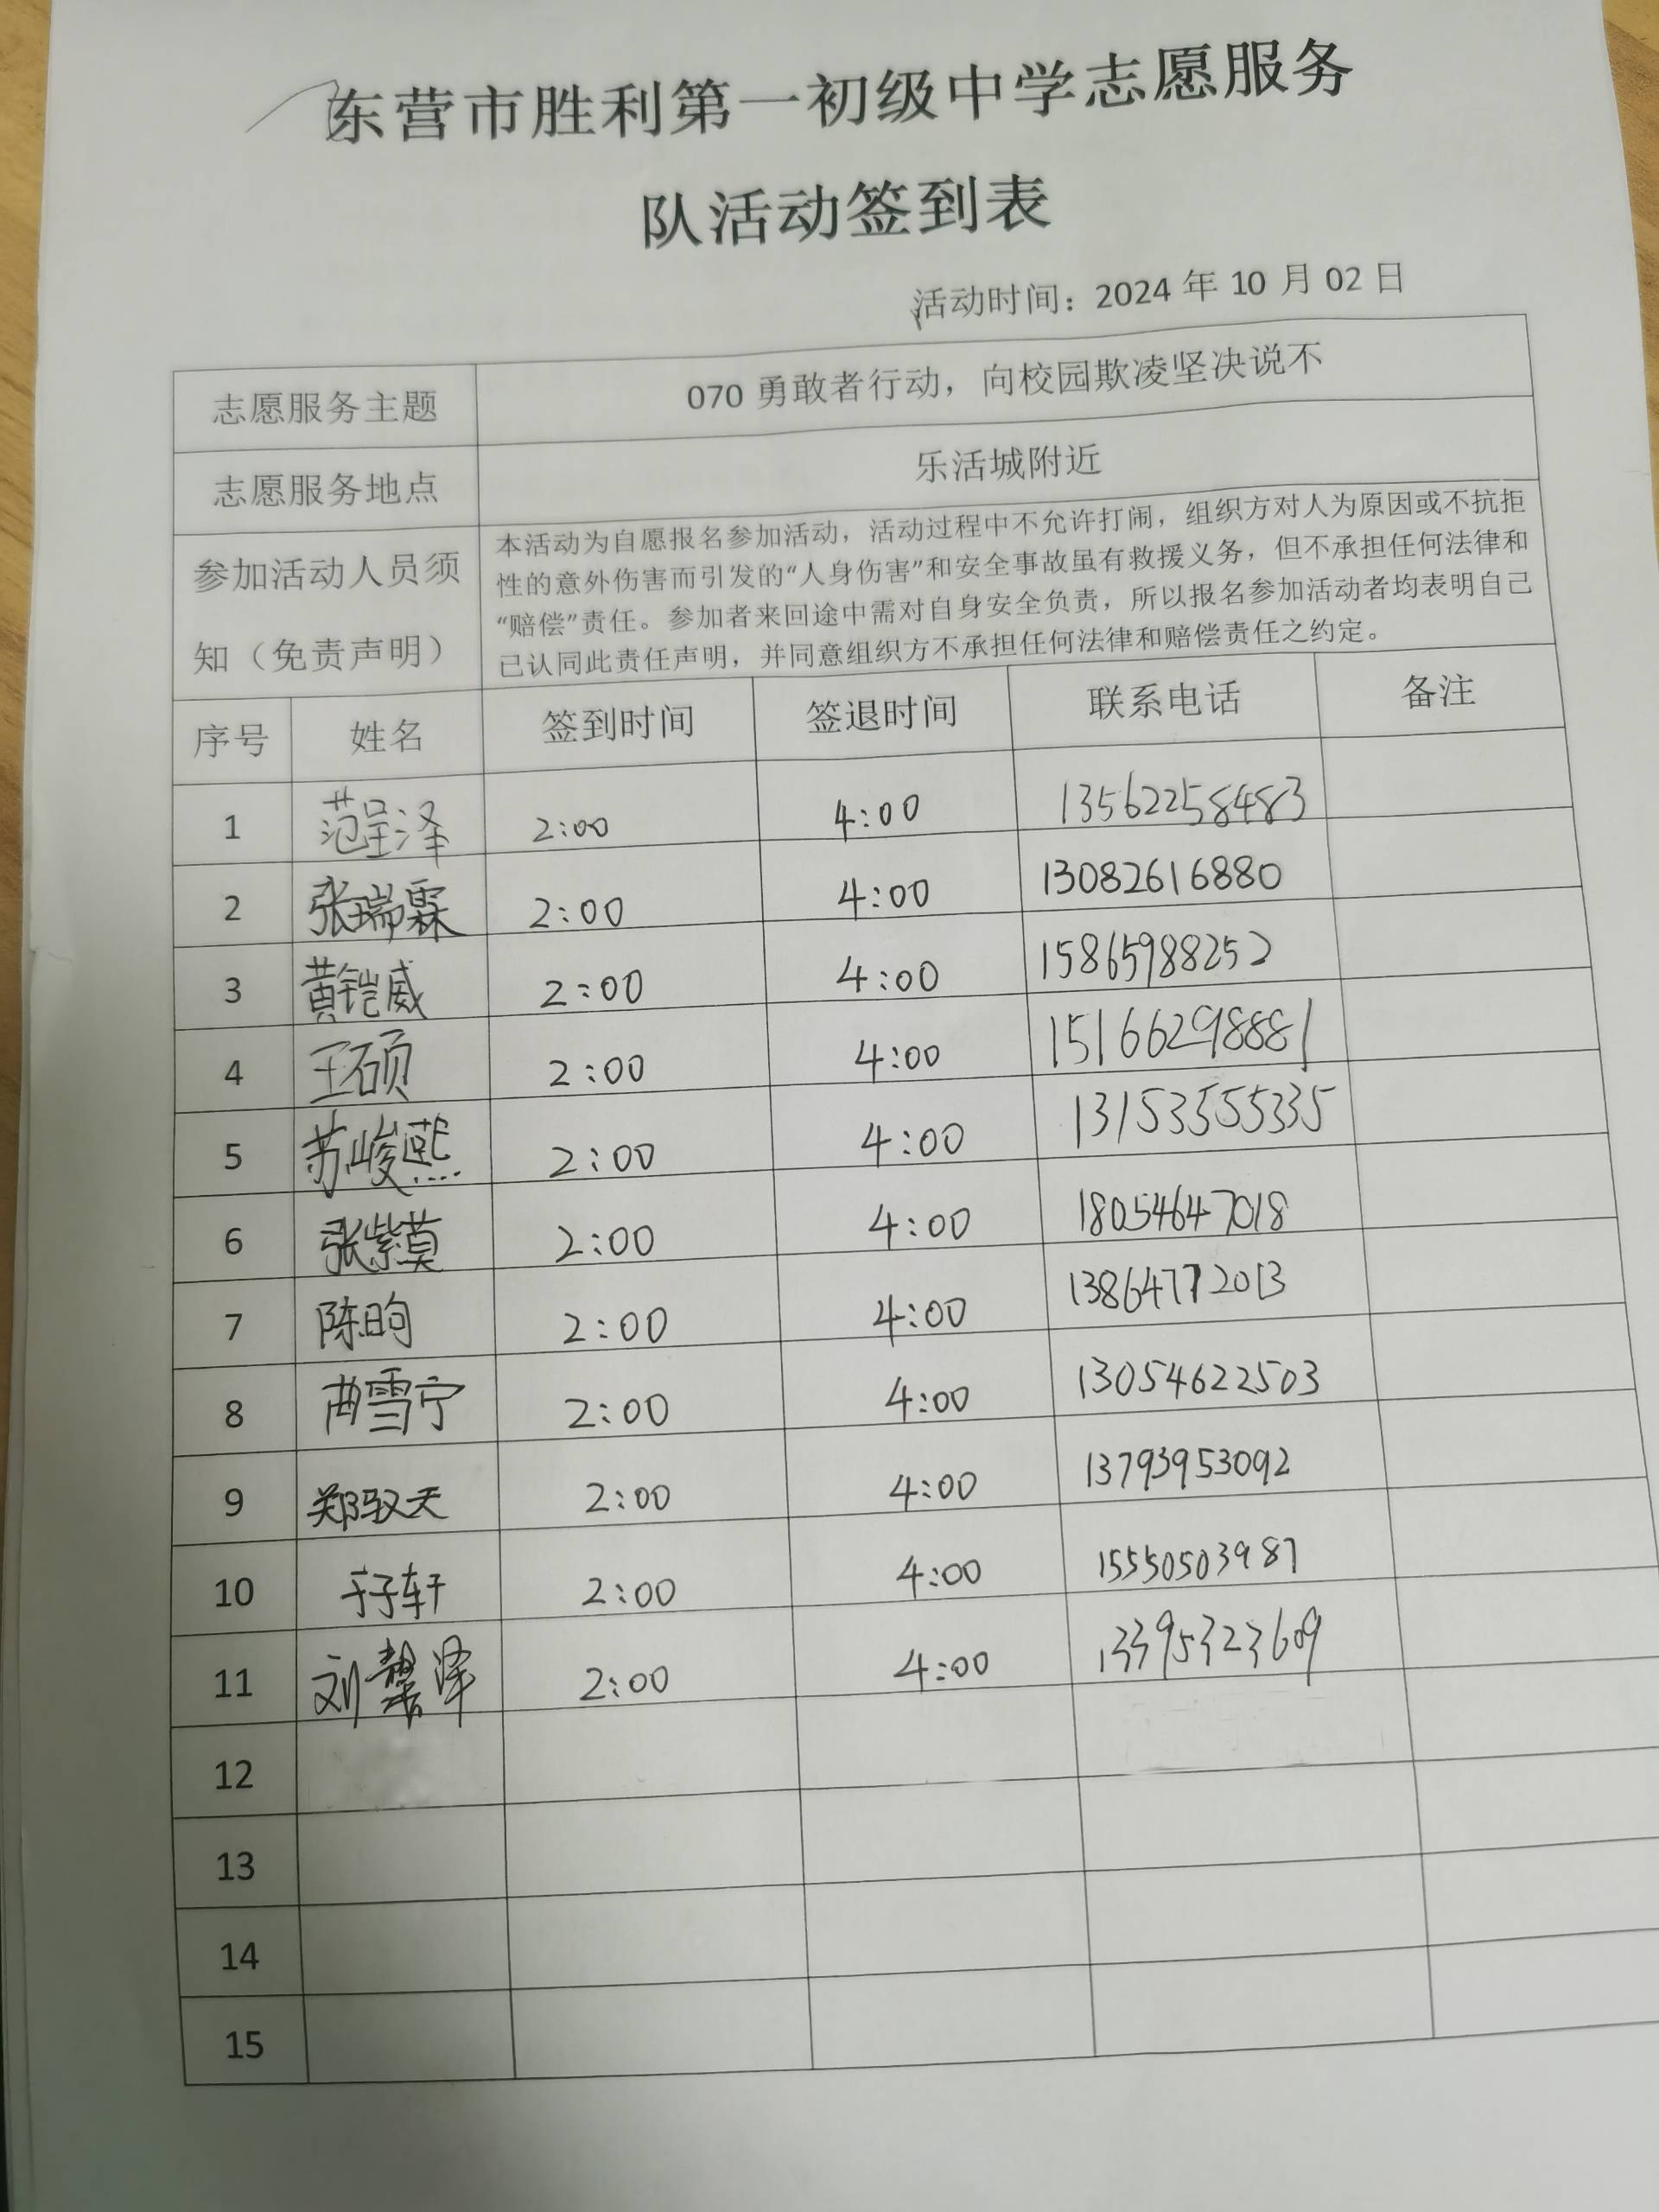 东营市胜利第一初级中学志愿服务
队活动签到表
活动时间：2024 年 10 月 02 日
志愿服务主题 070 勇敢者行动，向校园欺凌坚决说不
志愿服务地点 乐活城附近
参加活动人员须
知（免责声明）
本活动为自愿报名参加活动，活动过程中不允许打闹，组织方对人为原因或不抗拒
性的意外伤害而引发的“人身伤害”和安全事故虽有救援义务，但不承担任何法律和
“赔偿”责任。参加者来回途中需对自身安全负责，所以报名参加活动者均表明自己
已认同此责任声明，并同意组织方不承担任何法律和赔偿责任之约定。
序号 姓名 签到时间 签退时间 联系电话 备注
1 范呈泽 2:00 4:00 13562258483
2 张瑞霖 2:00 4:00 13082616880
3 黄铠威 2:00 4:00 15865988252
4 王硕 2:00 4:00 15166298881
5 苏峻熙 2:00 4:00 13153555335
6 张紫莫 2:00 4:00 18054647018
7 陈昀 2:00 4:00 13864772013
8 曲雪宁 2:00 4:00 13054622503
9 郑驭天 2:00 4:00 13793953092
10 于子轩 2:00 4:00 15550503987
11 刘馨泽 2:00 4:00 13395323609
12
13
14
15